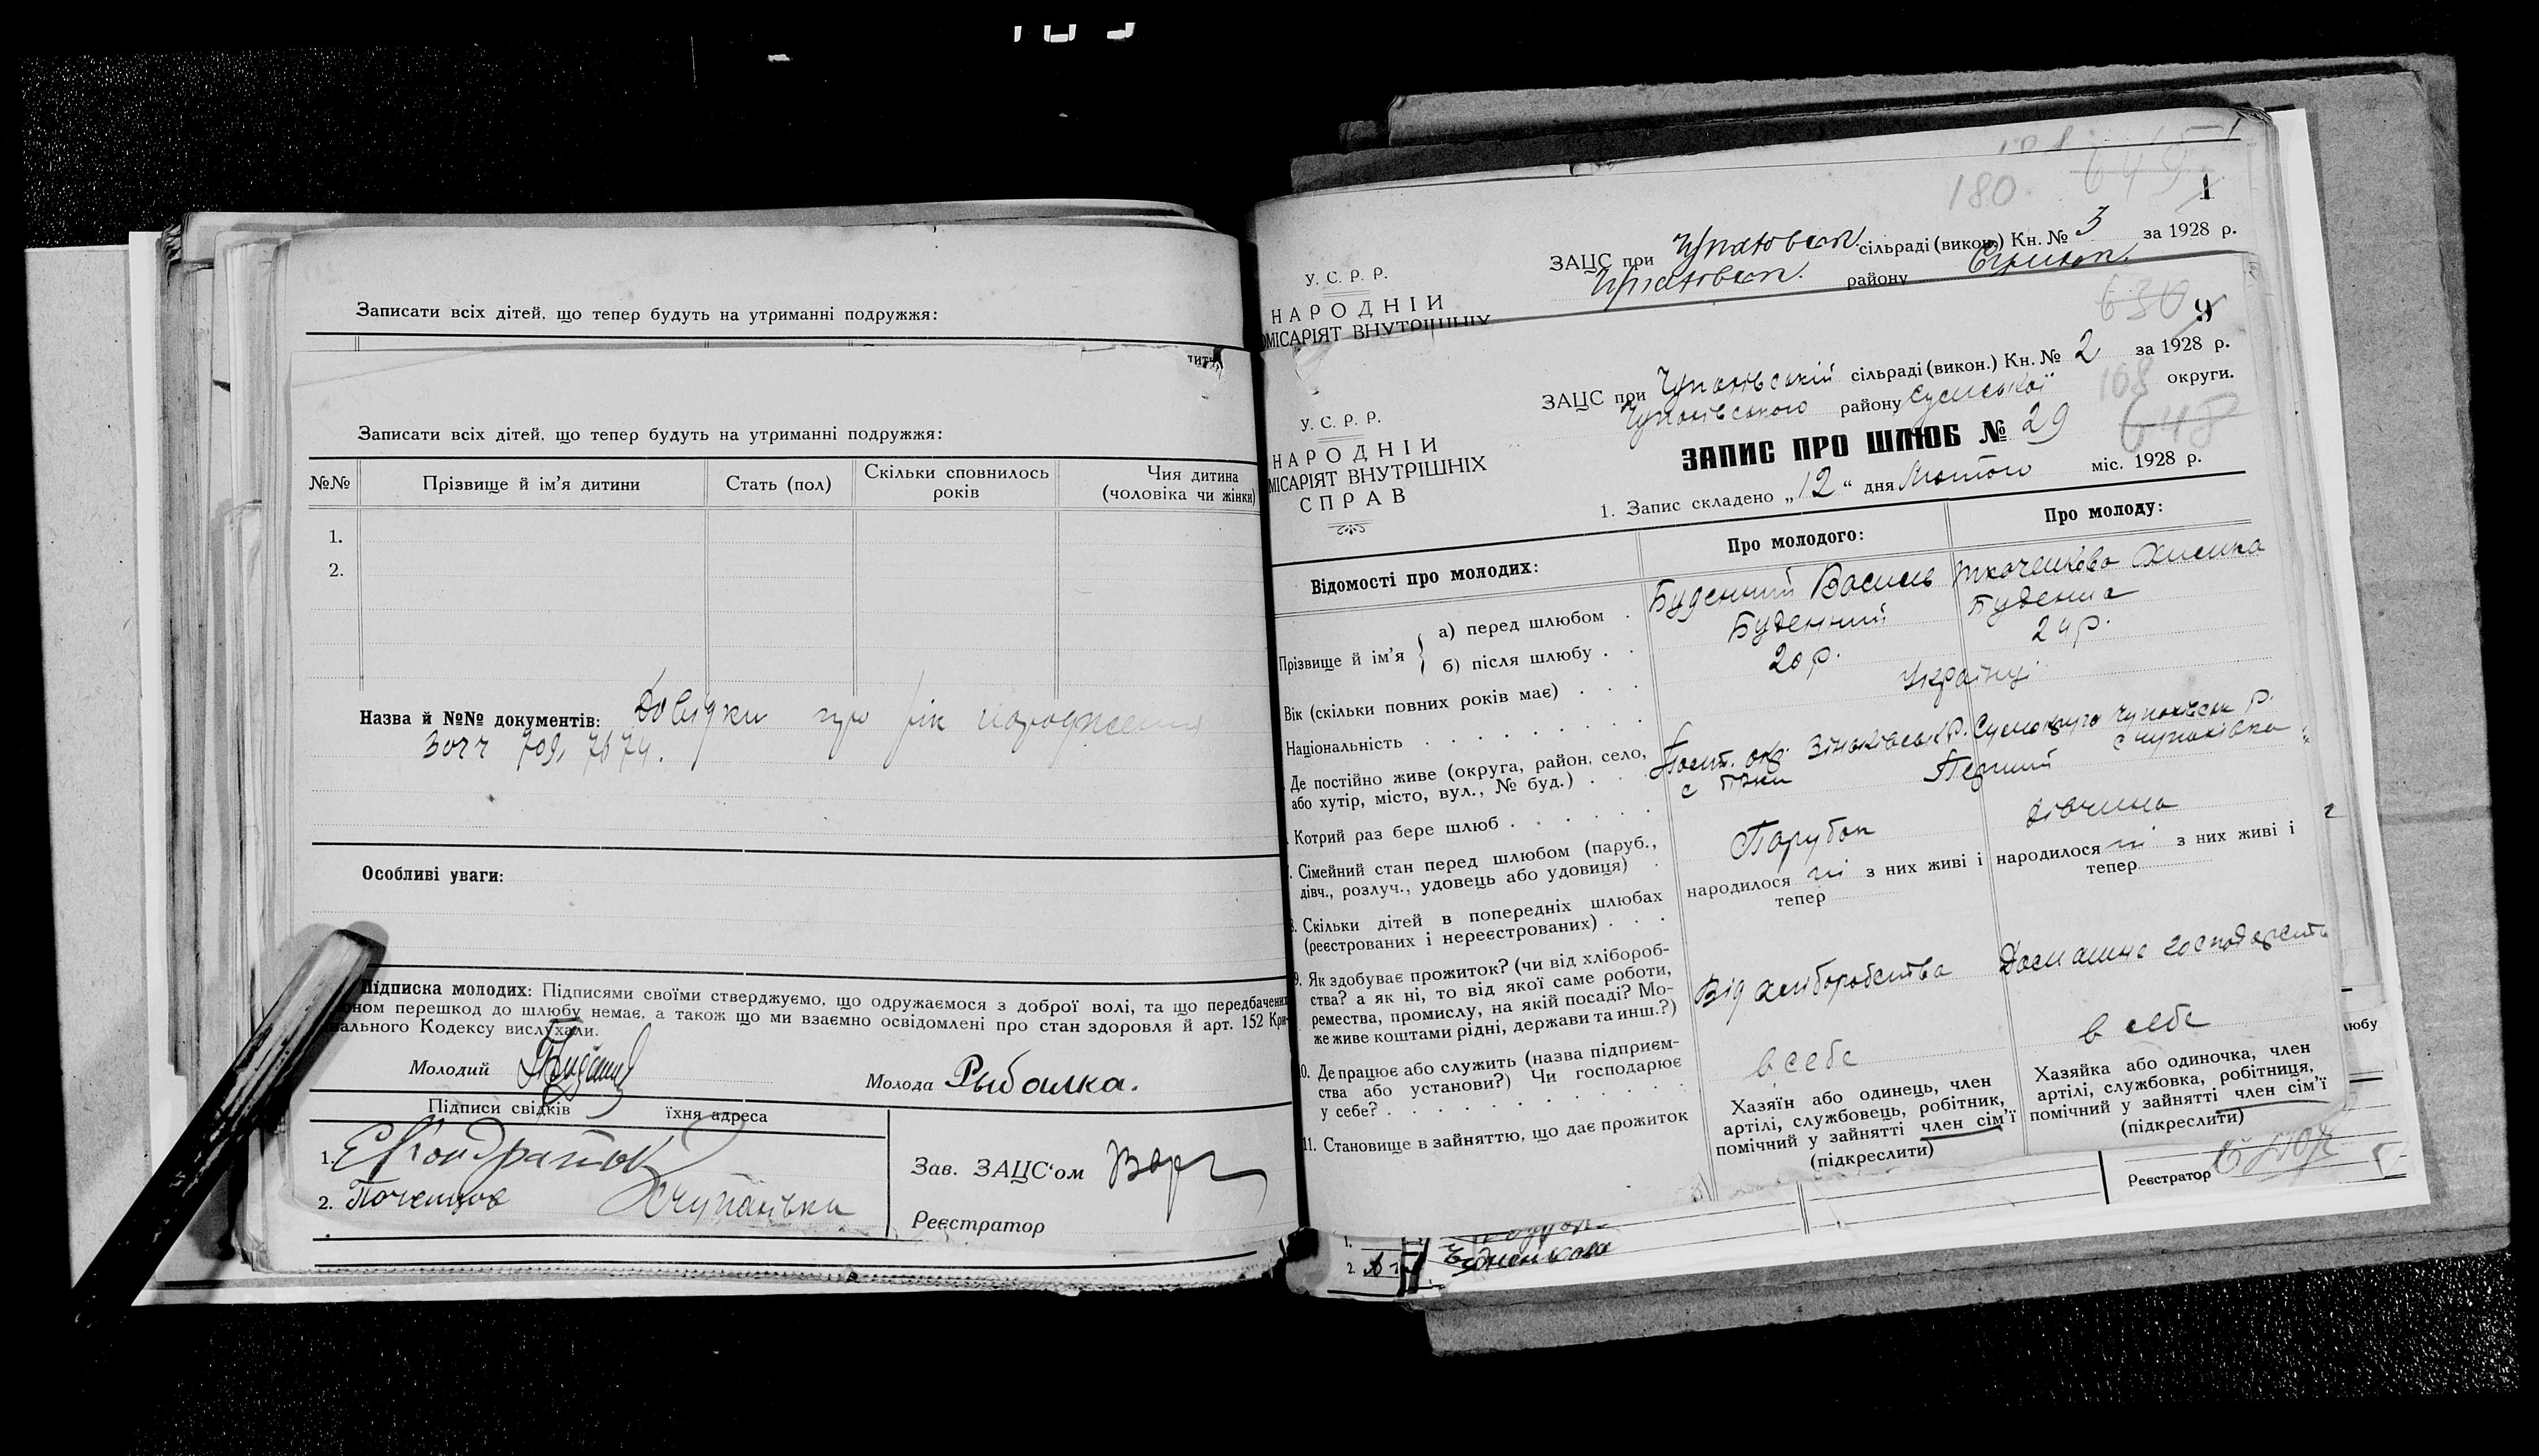 Записати всіх дітей, що тепер будуть на утриманні подружжя:
Записати всіх дітей, що тепер будуть на утриманні подружжя:
№№ Прізвище й ім'я дитини Стать (пол) Скільки сповнилось років Чия дитина (чоловіка чи жінки)
1.
2.
Назва й №№ документів: Довідки про рік народження
Особливі уваги:
Підписка молодих: Підписями своїми стверджуємо, що одружаємося з доброї волі, та що передбачених
оном перешкод до шлюбу немає, а також що ми взаємно освідомлені про стан здоровля й арт. 152 Кри-
ального Кодексу вислухали.
Молодий
Молода Рыбалка.
Підписи свідків їхня адреса
1. Кондратюк
2. с Чупахівка
Зав. ЗАЦС'ом
Реєстратор
180 649 1
У. С. Р. Р.
НАРОДНІЙ
ОМІСАРІЯТ ВНУТРІШНІХ
ЗАЦС при сільраді (викон.) Кн. № 3 за 1928 р.
району
630 9
У. С. Р. Р.
НАРОДНІЙ
МІСАРІЯТ ВНУТРІШНІХ
СПРАВ
ЗАЦС при Чупахівській сільраді (викон.) Кн. № 2 за 1928 р.
Чупахівського району Сумської округи.
168
648
ЗАПИС ПРО ШЛЮБ № 29
1. Запис складено „12" дня Лютого міс. 1928 р.
Відомості про молодих: Про молодого: Про молоду:
Прізвище й ім'я
а) перед шлюбом . Буденний Василь Ткаченкова
б) після шлюбу . . Буденний Буденна
Вік (скільки повних років має) . . . 20 р. 24 р.
Національність Українці
Де постійно живе (округа, район, село,
або хутір, місто, вул., № буд.) . Зіньківськ Р. Сумокруга Чупахівськ Р.
с Чупахівка
Котрий раз бере шлюб . . . . . . Перший
Сімейний стан перед шлюбом (паруб.,
дівч., розлуч., удовець або удовиця) . Парубок дівчина
8. Скільки дітей в попередніх шлюбах
(реєстрованих і нереєстрованих) . . .
народилося ні з них живі і
тепер
народилося ні з них живі і
тепер
9. Як здобуває прожиток? (чи від хлібороб-
ства? а як ні, то від якої саме роботи,
ремества, промислу, на якій посаді? Мо-
же живе коштами рідні, держави та инш.?)
Від хліборобства Домашнє господарств
10. Де працює або служить (назва підприєм-
ства або установи?) Чи господарює
у себе? . . . . . . . . . . . .
в себе в себе
11. Становище в зайняттю, що дає прожиток
Хазяїн або одинець, член
артілі, службовець, робітник,
помічний у зайнятті член сім'ї
(підкреслити)
Хазяйка або одиночка, член
артілі, службовка, робітниця,
помічний у зайнятті член сім'ї
(підкреслити)
Реєстратор
1.
2